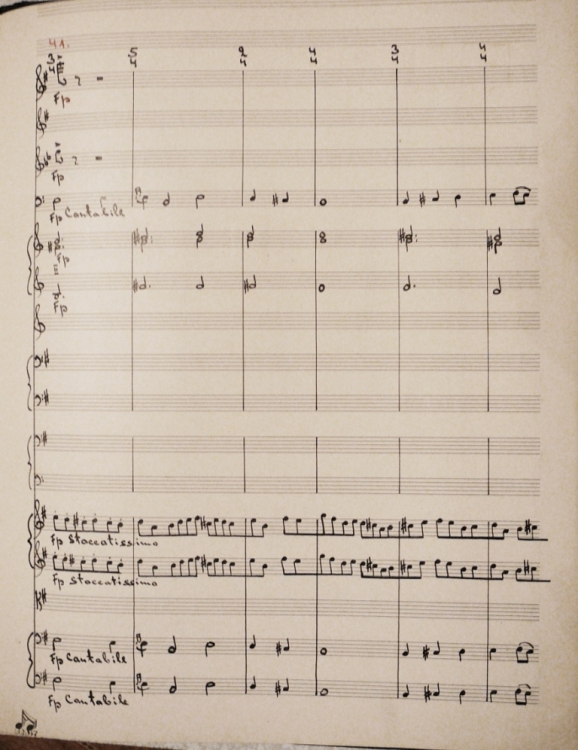 41.
3 5 2 4 3 4
4 4 4 4 4 4
Fp
Fp
Fp Cantabile
Fp
Fp
Fp Staccatissimo
Fp Staccatissimo
Fp Cantabile
Fp Cantabile